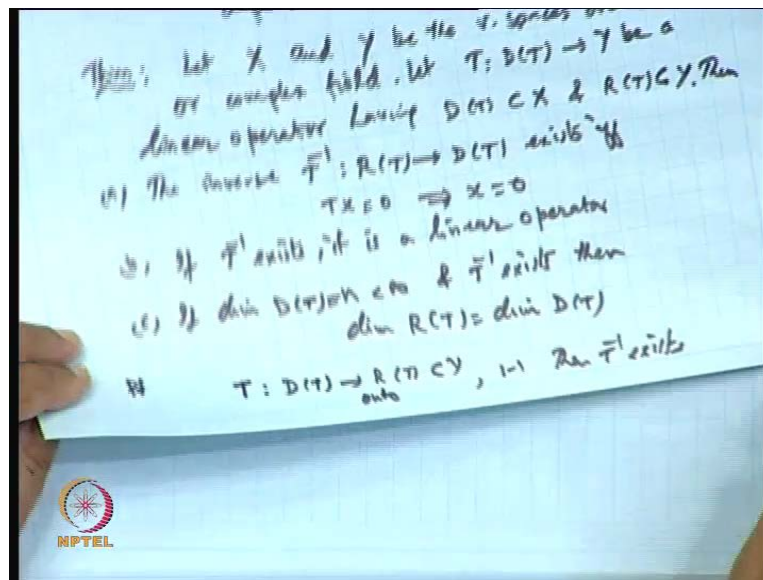 Thm: Let X and Y be the v. spaces
or complex field. Let T: D(T) → Y be a
linear operator having D(T) ⊂ X & R(T) ⊂ Y. Then
(a) The inverse T⁻¹: R(T) → D(T) exists iff
Tx=0 ⇒ x=0
(b) If T⁻¹ exists, it is a linear operator
(c) If dim D(T)=n < ∞ & T⁻¹ exists then
dim R(T) = dim D(T)
Pf T: D(T) → R(T) ⊂ Y, 1-1 Then T⁻¹ exists
onto
NPTEL